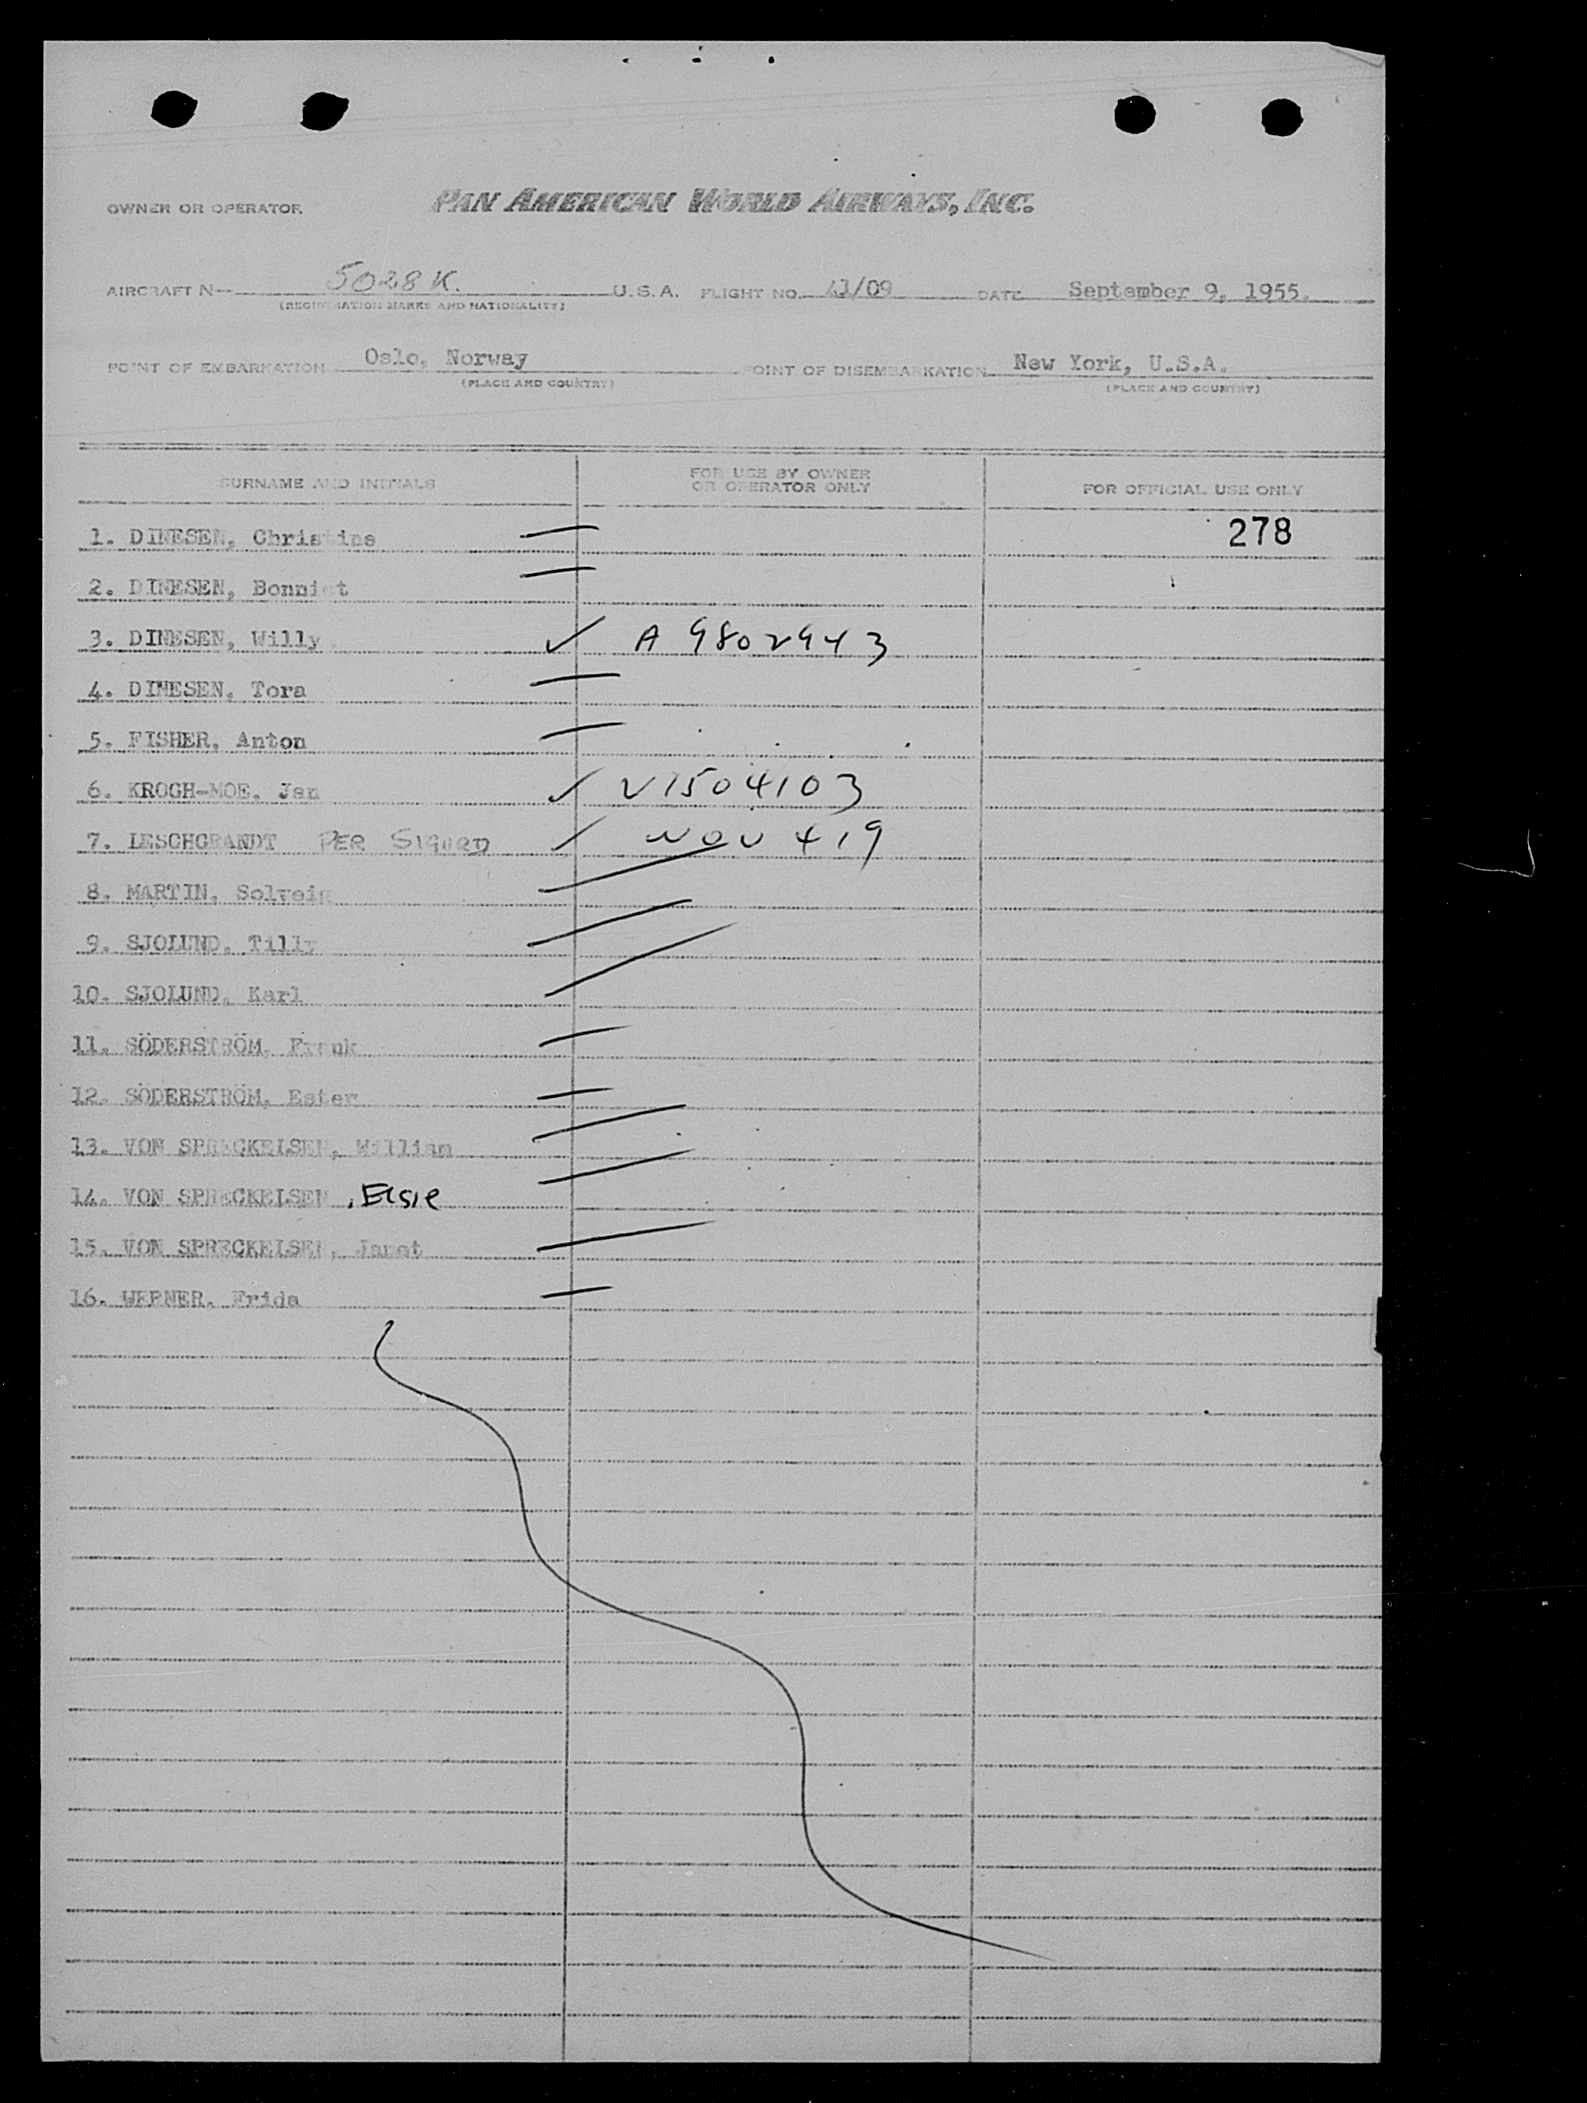 OWNER OR OPERATOR PAN AMERICAN WORLD AIRWAYS, INC.
AIRCRAFT N— 5028 K. U.S.A. FLIGHT NO. /09 DATE September 9, 1955.
(REGISTRATION MARKS AND NATIONALITY)
POINT OF EMBARKATION Oslo, Norway POINT OF DISEMBARKATION New York, U.S.A.
(PLACE AND COUNTRY) (PLACE AND COUNTRY)
SURNAME AND INITIALS FOR USE BY OWNER OR OPERATOR ONLY FOR OFFICIAL USE ONLY
1. DINESEN, Christine 278
2. DINESEN,
3. DINESEN, Willy ✓ A 9802943
4. DINESEN, Tora
5. FISHER, Anton
6. KROGH-MOE, Jan ✓ V1504103
7. LESCHGRANDT PER SIGURD ✓ NOV 419
8. MARTIN, Solveig
9. SJOLUND, Tilly
10. SJOLUND, Karl
11. SÖDERSTRÖM, Frank
12. SÖDERSTRÖM, Ester
13. VON SPRECKELSEN, William
14. VON SPRECKELSEN, Elsie
15. VON SPRECKELSEN, Janet
16. WERNER, Frida